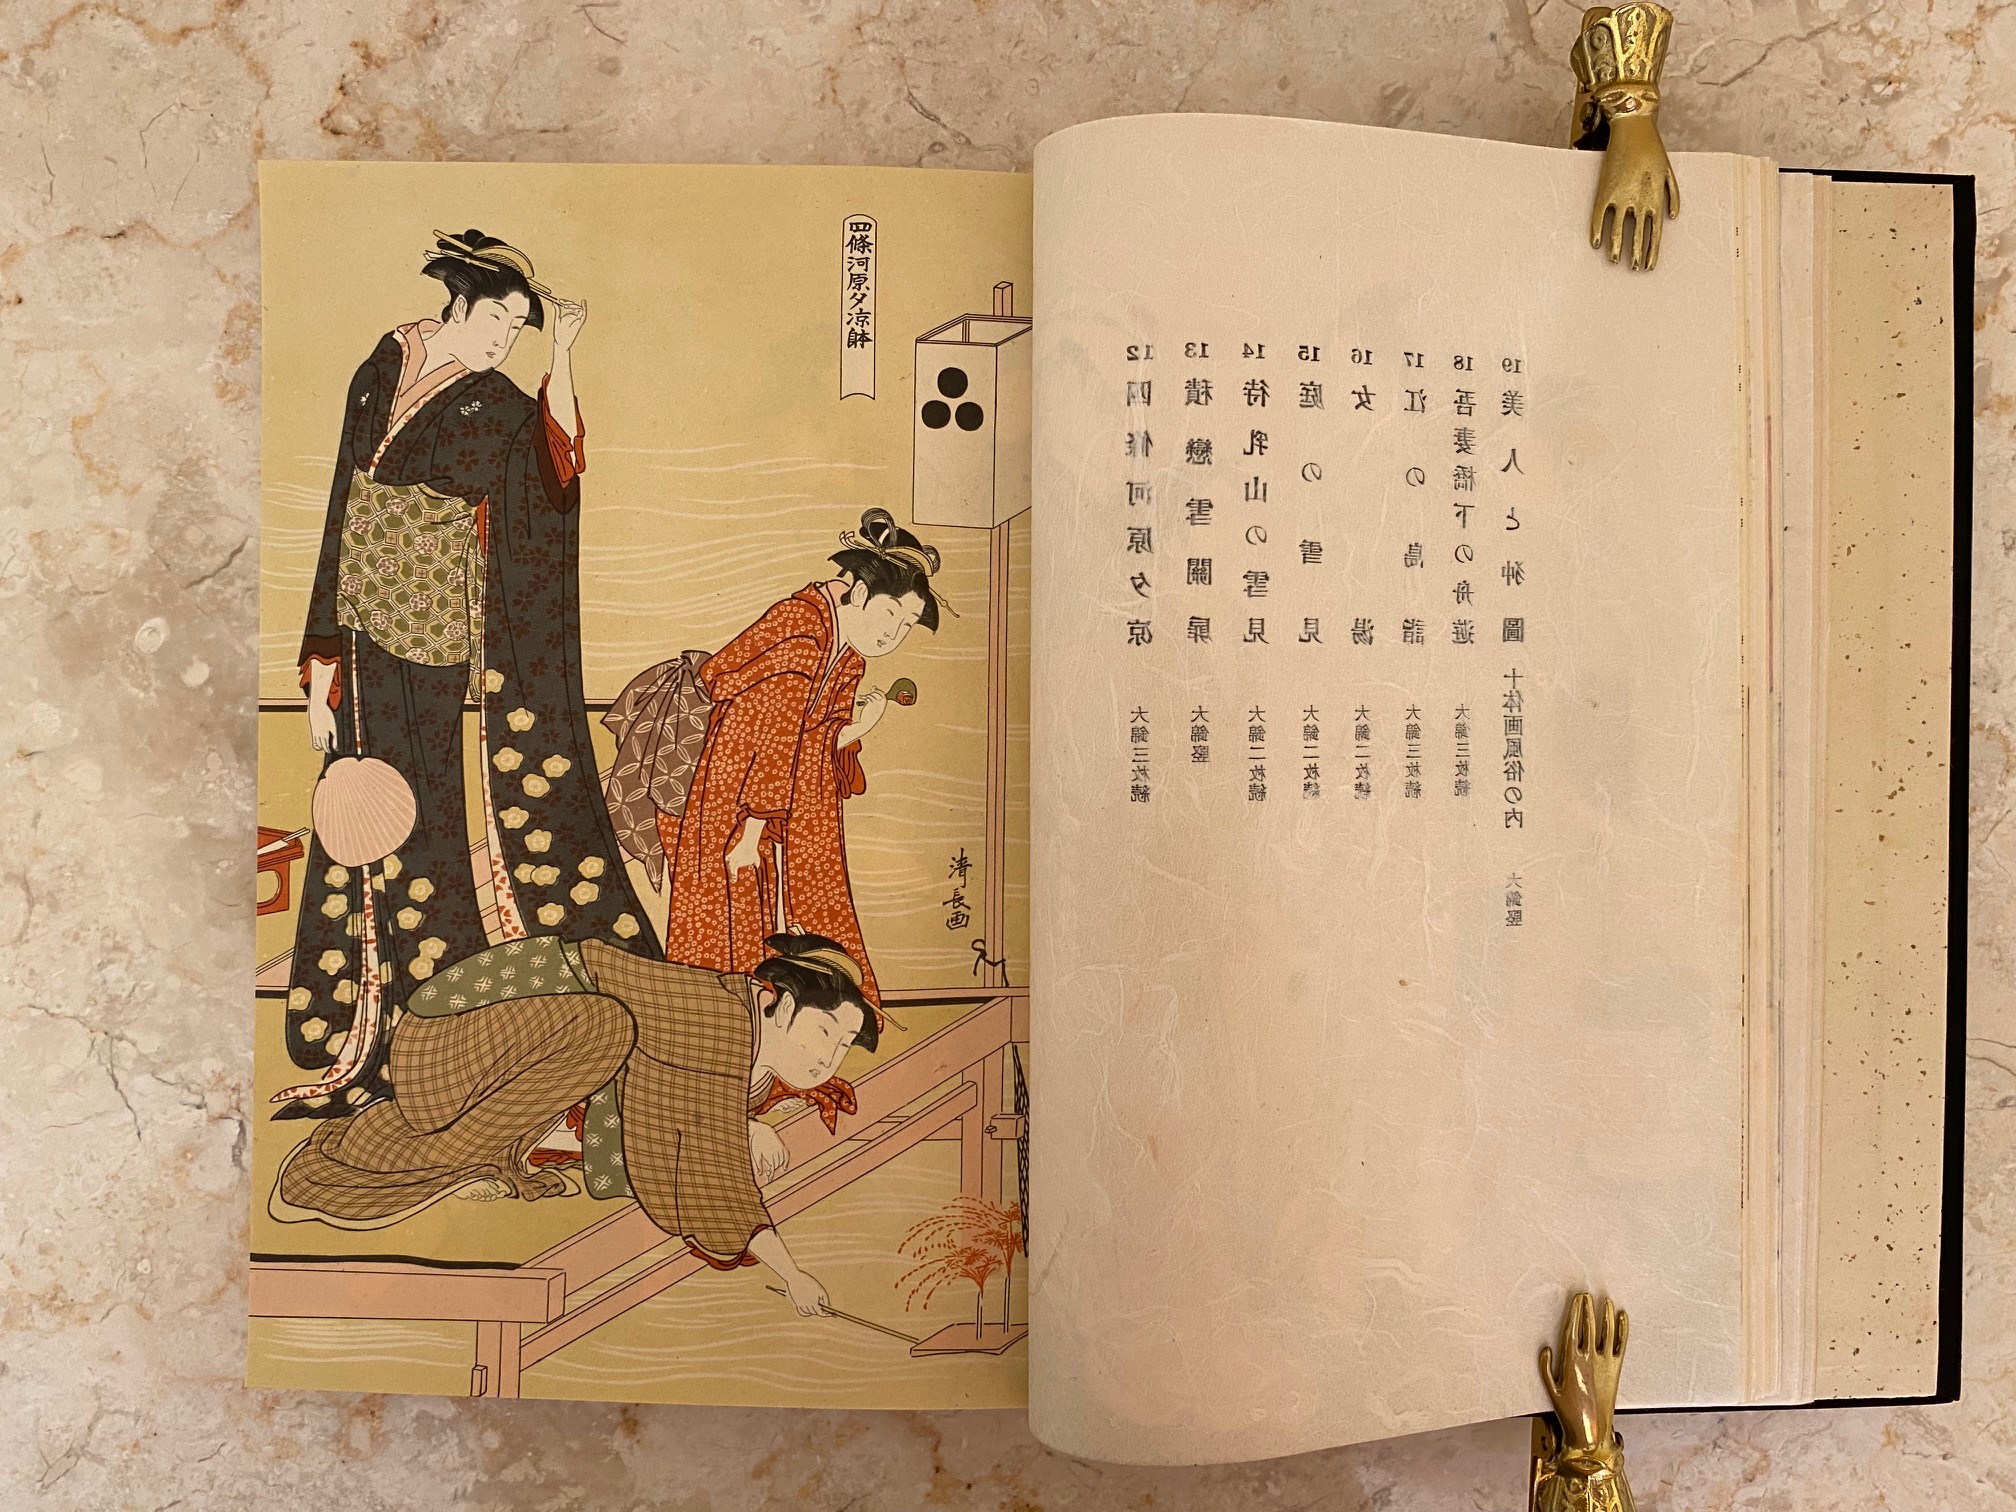 四條河原夕凉躰
清長画
12 四條河原夕凉 大錦三枚続
13 積戀雪關扉 大錦竪
14 待乳山の雪見 大錦二枚続
15 庭の雪見 大錦二枚続
16 女湯 大錦二枚続
17 江の島詣 大錦三枚続
18 吾妻橋下の舟遊 大錦三枚続
19 美人と狆圖 十体画風俗の内 大錦竪